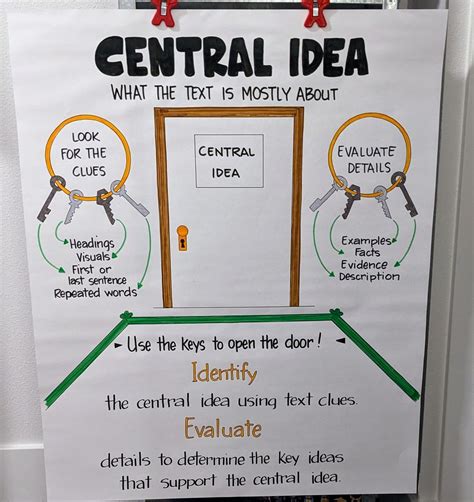 CENTRAL IDEA
WHAT THE TEXT IS MOSTLY ABOUT
LOOK
FOR THE
CLUES
CENTRAL
IDEA
EVALUATE
DETAILS
Headings
Visuals
First or
last sentence
Repeated words
Examples
Facts
Evidence
Description
Use the keys to open the door!
Identify
the central idea using text clues.
Evaluate
details to determine the key ideas
that support the central idea.